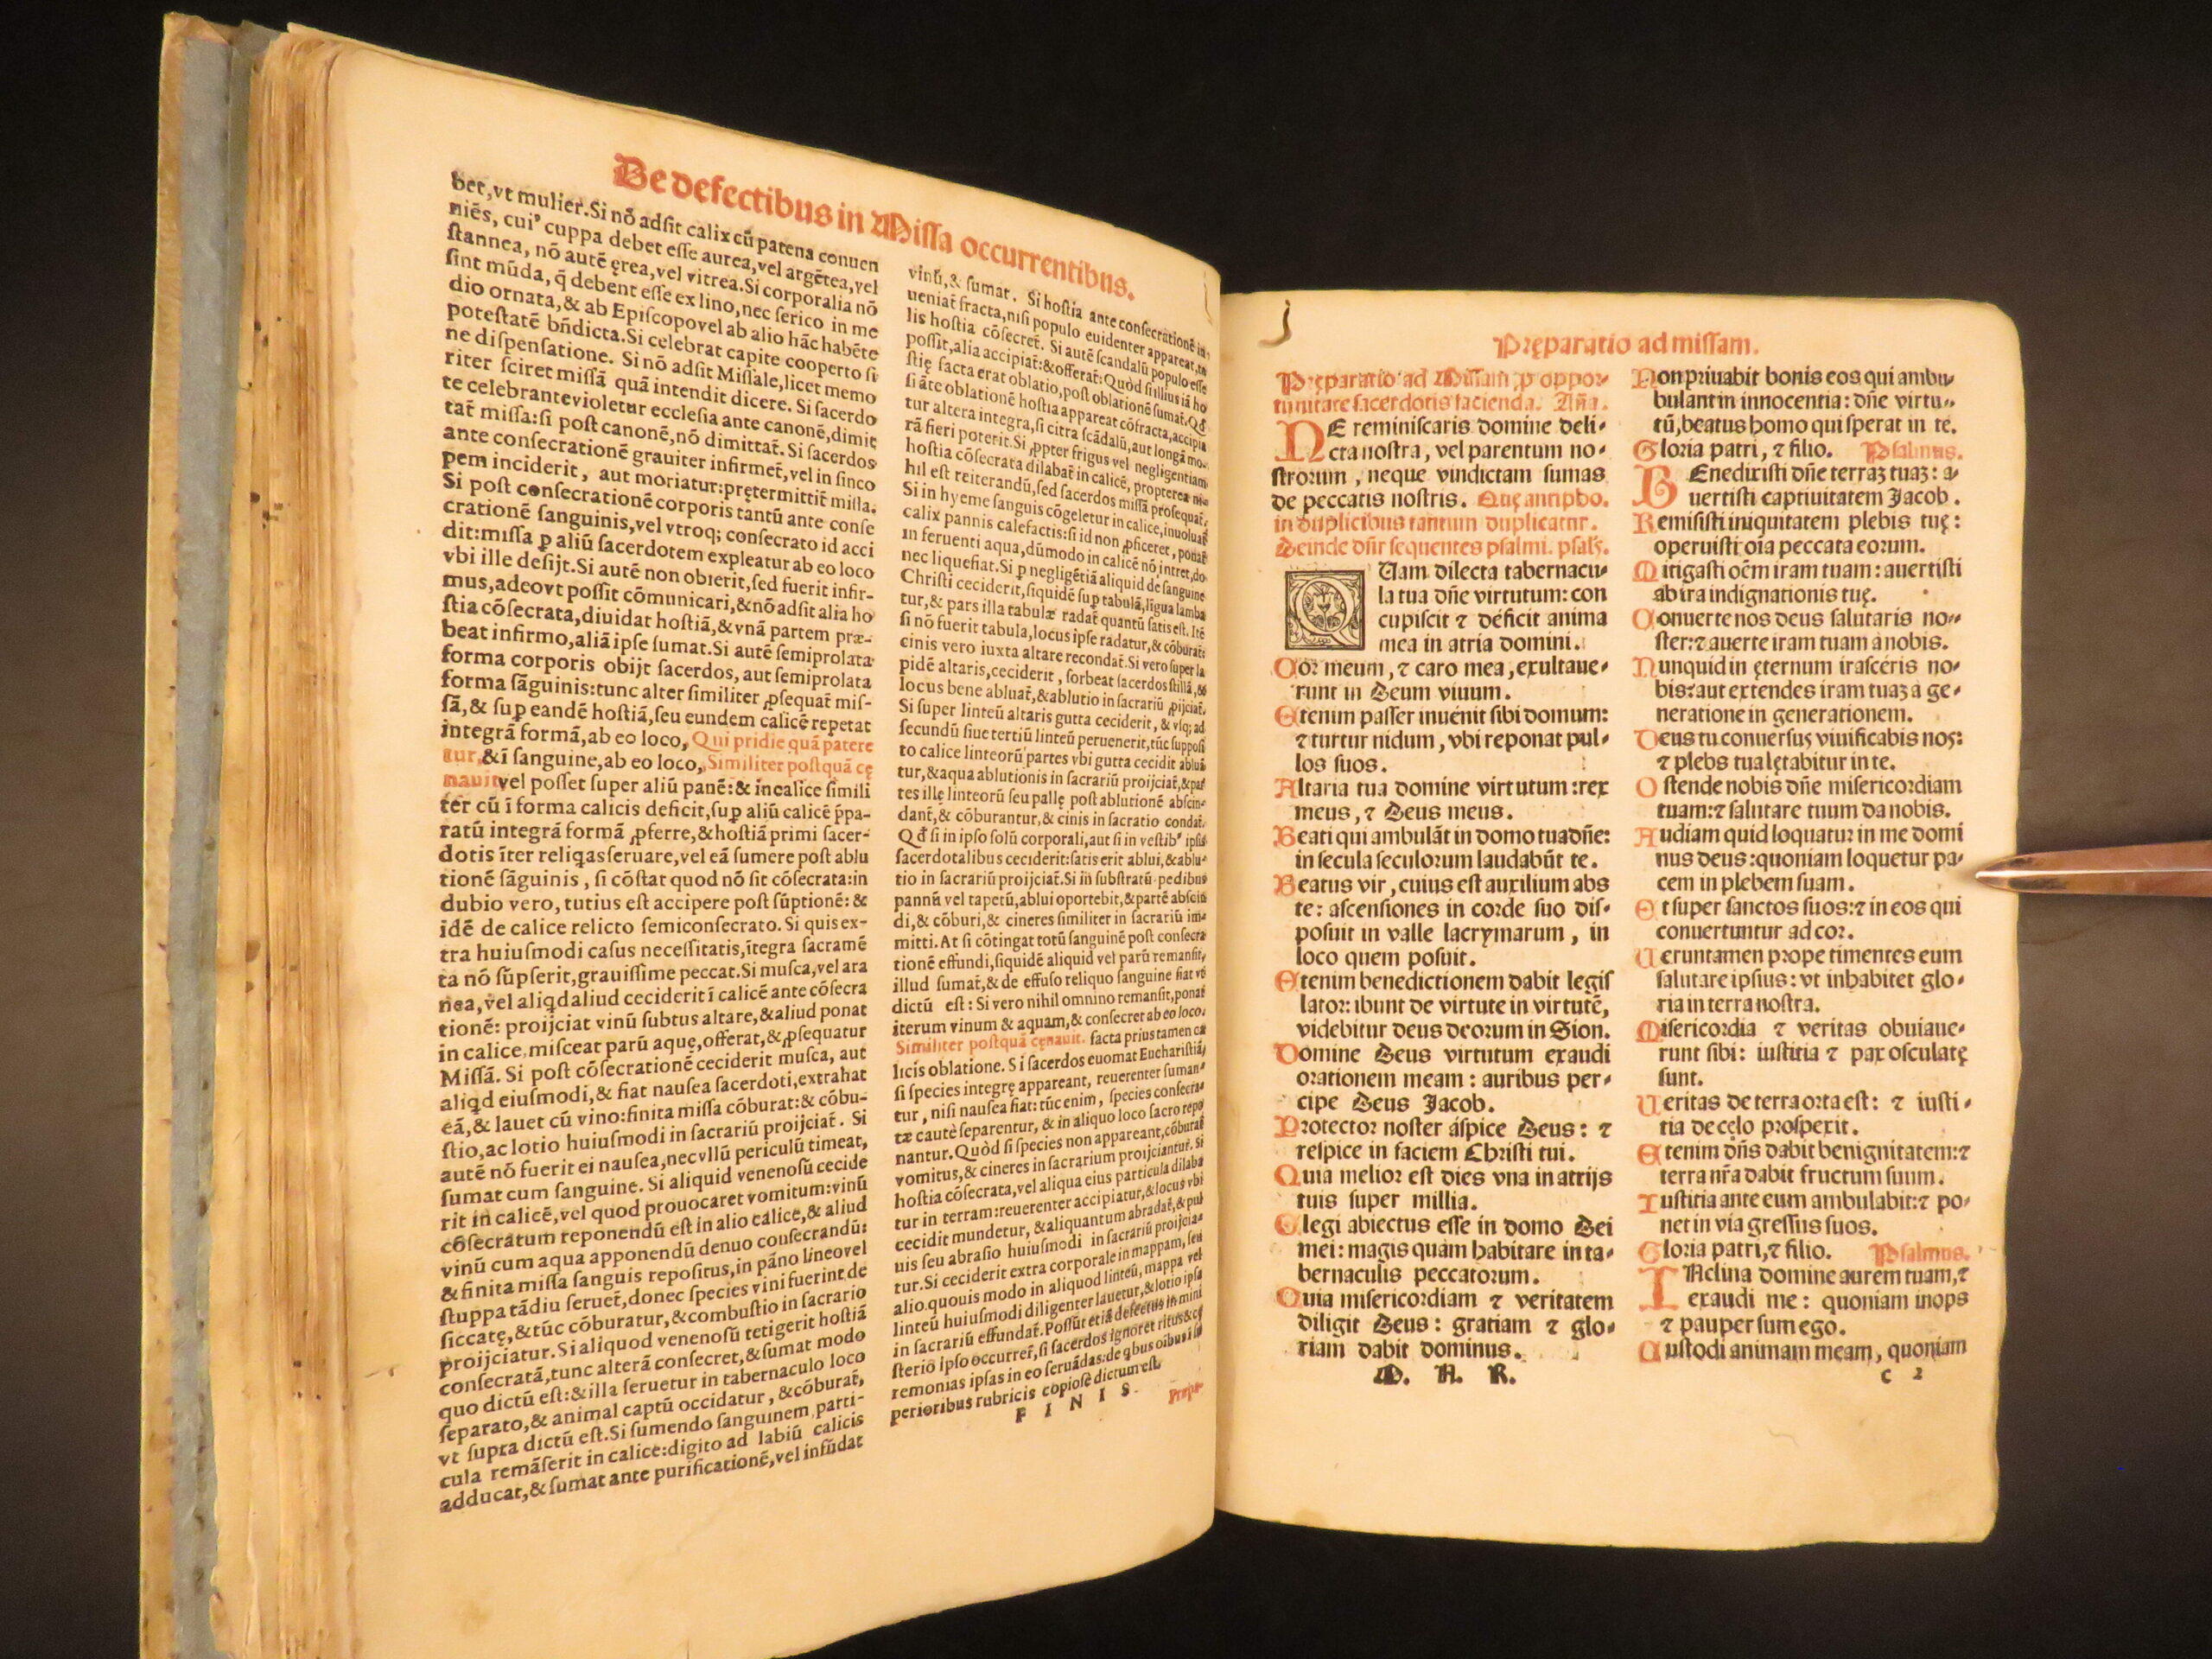 De defectibus in Missa occurrentibus.
bet,vt mulier.Si nõ adſit calix cũ patena conuen
niẽs, cui⁹ cuppa debet eſſe aurea,vel argẽtea,vel
ſtannea, nõ autẽ ęrea,vel vitrea.Si corporalia nõ
ſint mũda, q̃ debent eſſe ex lino,nec ſerico in me
dio ornata,& ab Epiſcopo vel ab alio hãc habẽte
poteſtatẽ bñdicta.Si celebrat capite cooperto ſi
ne diſpenſatione. Si nõ adſit Miſſale,licet memo
riter ſciret miſſã quã intendit dicere. Si ſacerdo
te celebrante violetur eccleſia ante canonẽ,dimit
tat̃ miſſa:ſi poſt canonẽ,nõ dimittat̃. Si ſacerdos
ante conſecrationẽ grauiter infirmet̃,vel in ſinco
pem inciderit, aut moriatur:prętermittit̃ miſſa.
Si poſt conſecrationẽ corporis tantũ ante conſe
crationẽ ſanguinis,vel vtroq; conſecrato id acci
dit:miſſa ꝑ aliũ ſacerdotem expleatur ab eo loco
vbi ille deſijt.Si autẽ non obierit,ſed fuerit infir-
mus,adeo vt poſſit cõmunicari,& nõ adſit alia ho
ſtia cõſecrata,diuidat hoſtiã,& vnã partem præ-
beat infirmo,aliã ipſe ſumat.Si autẽ ſemiprolata
forma corporis obijt ſacerdos, aut ſemiprolata
forma ſãguinis:tunc alter ſimiliter ꝓſequat̃ miſ-
ſã,& ſuꝑ eandẽ hoſtiã,ſeu eundem calicẽ repetat
integrã formã,ab eo loco, Qui pridie quã patere
tur,&ĩ ſanguine,ab eo loco, Similiter poſtquã cę
nauit vel poſſet ſuper aliũ panẽ:& in calice ſimili
ter cũ ĩ forma calicis deficit,ſuꝑ aliũ calicẽ p̃pa-
ratũ integrã formã ꝓferre,& hoſtiã primi ſacer-
dotis ĩter reliq̃as ſeruare,vel eã ſumere poſt ablu
tionẽ ſãguinis, ſi cõſtat quod nõ ſit cõſecrata:in
dubio vero, tutius eſt accipere poſt ſũptionẽ: &
idẽ de calice relicto ſemiconſecrato. Si quis ex-
tra huiuſmodi caſus neceſſitatis,ĩtegra ſacramẽ
ta nõ ſũpſerit,grauiſſime peccat.Si muſca,vel ara
nea,vel aliq̃d aliud ceciderit ĩ calicẽ ante cõſecra
tionẽ: proijciat vinũ ſubtus altare,& aliud ponat
in calice,miſceat parũ aquę,offerat,& ꝓſequatur
Miſſã. Si poſt cõſecrationẽ ceciderit muſca, aut
aliq̃d eiuſmodi,& fiat nauſea ſacerdoti,extrahat
eã,& lauet cũ vino:finita miſſa cõburat:& cõbu-
ſtio,ac lotio huiuſmodi in ſacrariũ proijciat̃. Si
autẽ nõ fuerit ei nauſea,nec vllũ periculũ timeat,
ſumat cum ſanguine. Si aliquid venenoſũ cecide
rit in calicẽ,vel quod prouocaret vomitum:vinũ
cõſecratum reponendũ eſt in alio calice,& aliud
vinũ cum aqua apponendũ denuo conſecrandũ:
& finita miſſa ſanguis repoſitus,in pãno lineo vel
ſtuppa tãdiu ſeruet̃,donec ſpecies vini fuerint de
ſiccatę,& tũc cõburatur,& combuſtio in ſacrario
proijciatur. Si aliquod venenoſũ tetigerit hoſtiã
conſecratã,tunc alterã conſecret,& ſumat modo
quo dictũ eſt:& illa ſeruetur in tabernaculo loco
ſeparato,& animal captũ occidatur, & cõburat̃,
vt ſupra dictũ eſt.Si ſumendo ſanguinem parti-
cula remãſerit in calice:digito ad labiũ calicis
adducat,& ſumat ante purificationẽ,vel infũdat
vinũ,& ſumat. Si hoſtia ante conſecrationẽ in-
ueniat̃ fracta,niſi populo euidenter appareat,ta
lis hoſtia cõſecret̃. Si autẽ ſcandalũ populo eſſe
poſſit,alia accipiat̃:& offerat̃: Quòd ſi illius iã ho
ſtię facta erat oblatio,poſt oblationẽ ſumat̃.Qđ
ſi ãte oblationẽ hoſtia appareat cõfracta,accipia
tur altera integra,ſi citra ſcãdalũ,aut longã mo-
rã fieri poterit.Si ꝓpter frigus vel negligentiam
hoſtia cõſecrata dilabat̃ in calicẽ, propterea ni-
hil eſt reiterandũ,ſed ſacerdos miſſã proſequat̃.
Si in hyeme ſanguis cõgeletur in calice,inuoluat̃
calix pannis calefactis:ſi id non ꝓficeret, ponat̃
in feruenti aqua,dũmodo in calicẽ nõ intret,do
nec liquefiat.Si ꝑ negligẽtiã aliquid de ſanguine
Chriſti ceciderit,ſiquidẽ ſuꝑ tabulã,lĩgua lamba
tur,& pars illa tabulæ radat̃ quantũ ſatis eſt. Itẽ
ſi nõ fuerit tabula,locus ipſe radatur,& cõburat̃:
cinis vero iuxta altare recondat̃.Si vero ſuper la
pidẽ altaris,ceciderit, ſorbeat ſacerdos ſtillã,&
locus bene abluat̃,& ablutio in ſacrariũ ꝓijciat̃.
Si ſuper linteũ altaris gutta ceciderit, & vſq; ad
ſecundũ ſiue tertiũ linteũ peruenerit,tũc ſuppoſi
to calice linteorũ partes vbi gutta cecidit ablua
tur,& aqua ablutionis in ſacrariũ proijciat̃,& par
tes illę linteorũ ſeu pallę poſt ablutionẽ abſcin-
dant̃,& cõburantur,& cinis in ſacratio condat̃.
Qđ ſi in ipſo ſolũ corporali,aut ſi in veſtib⁹ ipſis
ſacerdotalibus ceciderit:ſatis erit ablui,& ablu-
tio in ſacrariũ proijciat̃.Si in ſubſtratũ pedibus
pannũ vel tapetũ,ablui oportebit,& partẽ abſcin
di,& cõburi,& cineres ſimiliter in ſacrariũ im-
mitti. At ſi cõtingat totũ ſanguinẽ poſt conſecra
tionẽ effundi,ſiquidẽ aliquid vel parũ remanſit,
illud ſumat̃,& de effuſo reliquo ſanguine fiat vt
dictũ eſt: Si vero nihil omnino remanſit,ponat
iterum vinum & aquam,& conſecret ab eo loco.
Similiter poſtquã cęnauit. facta prius tamen ca
licis oblatione. Si ſacerdos euomat Euchariſtiã,
ſi ſpecies integrę appareant, reuerenter ſuman-
tur, niſi nauſea fiat: tũc enim, ſpecies conſecra-
tæ cautè ſeparentur, & in aliquo loco ſacro repo
nantur.Quòd ſi ſpecies non appareant,cõburat̃
vomitus,& cineres in ſacrarium proijciantur. Si
hoſtia cõſecrata,vel aliqua eius particula dilaba
tur in terram:reuerenter accipiatur,& locus vbi
cecidit mundetur, & aliquantum abradat̃,& pul
uis ſeu abraſio huiuſmodi in ſacrariũ proijcia-
tur.Si ceciderit extra corporale in mappam, ſeu
alio quouis modo in aliquod linteũ, mappa vel
linteũ huiuſmodi diligenter lauetur,& lotio ipſa
in ſacrariũ effundat̃.Poſſũt etiã defectus in mini
ſterio ipſo occurrer̃,ſi ſacerdos ignoret ritus & cę
remonias ipſas in eo ſeruãdas:de q̃bus oĩbus in ſu
perioribus rubricis copioſè dictum eſt.
F I N I S.
Pręparatio ad miſſam.
Pręparatio ad Miſſam ꝓ oppor-
tunitate ſacerdotis facienda. Aña.
NE reminiſcaris domine deli-
cta noſtra, vel parentum no-
ſtrorum, neque vindictam ſumas
de peccatis noſtris. Quę antipho.
in duplicibus tantum duplicatur.
Deinde dñr ſequentes pſalmi. pſalꝰ.
QUam dilecta tabernacu-
la tua dñe virtutum: con
cupiſcit ⁊ déficit anima
mea in atria domini.
Cor meum, ⁊ caro mea, exultaue-
runt in Deum viuum.
Etenim paſſer inuénit ſibi domum:
⁊ turtur nidum, vbi reponat pul-
los ſuos.
Altaria tua domine virtutum: rex
meus, ⁊ Deus meus.
Beati qui ambulãt in domo tua dñe:
in ſecula ſeculorum laudabũt te.
Beatus vir, cuius eſt auxilium abs
te: aſcenſiones in corde ſuo diſ-
poſuit in valle lacrymarum, in
loco quem poſuit.
Etenim benedictionem dabit legiſ
lator: ibunt de virtute in virtutẽ,
videbitur deus deorum in Sion.
Domine Deus virtutum exaudi
orationem meam: auribus per-
cipe Deus Jacob.
Protector noſter áſpice Deus: ⁊
reſpice in faciem Chriſti tui.
Quia melior eſt dies vna in atrijs
tuis ſuper millia.
Elegi abiectus eſſe in domo Dei
mei: magis quàm habitare in ta-
bernaculis peccatorum.
Quia miſericordiam ⁊ veritatem
diligit Deus: gratiam ⁊ glo-
riam dabit dominus.
M. A. R.
Non priuabit bonis eos qui ambu-
bulant in innocentia: dñe virtu-
tũ, beatus homo qui ſperat in te.
Gloria patri, ⁊ filio. Pſalmus.
BEnedixiſti dñe terraꝫ tuaꝫ: a-
uertiſti captiuitatem Jacob.
Remiſiſti iniquitatem plebis tuę:
operuiſti oĩa peccata eorum.
Mitigaſti oẽm iram tuam: auertiſti
ab ira indignationis tuę.
Conuerte nos deus ſalutaris no-
ſter: ⁊ auerte iram tuam à nobis.
Nunquid in ęternum iraſcéris no-
bis: aut extendes iram tuaꝫ a ge-
neratione in generationem.
Deus tu conuerſus viuificabis nos:
⁊ plebs tua lętabitur in te.
Oſtende nobis dñe miſericordiam
tuam: ⁊ ſalutare tuum da nobis.
Audiam quid loquatur in me domi
nus deus: quoniam loquetur pa-
cem in plebem ſuam.
Et ſuper ſanctos ſuos: ⁊ in eos qui
conuertuntur ad cor.
Ueruntamen prope timentes eum
ſalutare ipſius: vt inhabitet glo-
ria in terra noſtra.
Miſericordia ⁊ veritas obuiaue-
runt ſibi: iuſtitia ⁊ pax oſculatę
ſunt.
Ueritas de terra orta eſt: ⁊ iuſti-
tia de cęlo proſpexit.
Etenim dñs dabit benignitatem: ⁊
terra nr̃a dabit fructum ſuum.
Iuſtitia ante eum ambulabit: ⁊ po-
net in via greſſus ſuos.
Gloria patri, ⁊ filio. Pſalmus.
INclina domine aurem tuam, ⁊
exaudi me: quoniam inops
⁊ pauper ſum ego.
Cuſtodi animam meam, quoniam
c 2